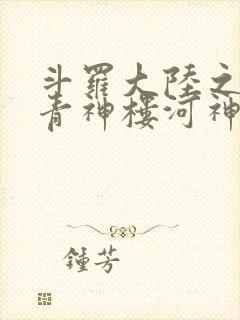 斗羅大陸之
青神樓河神
鍾芳